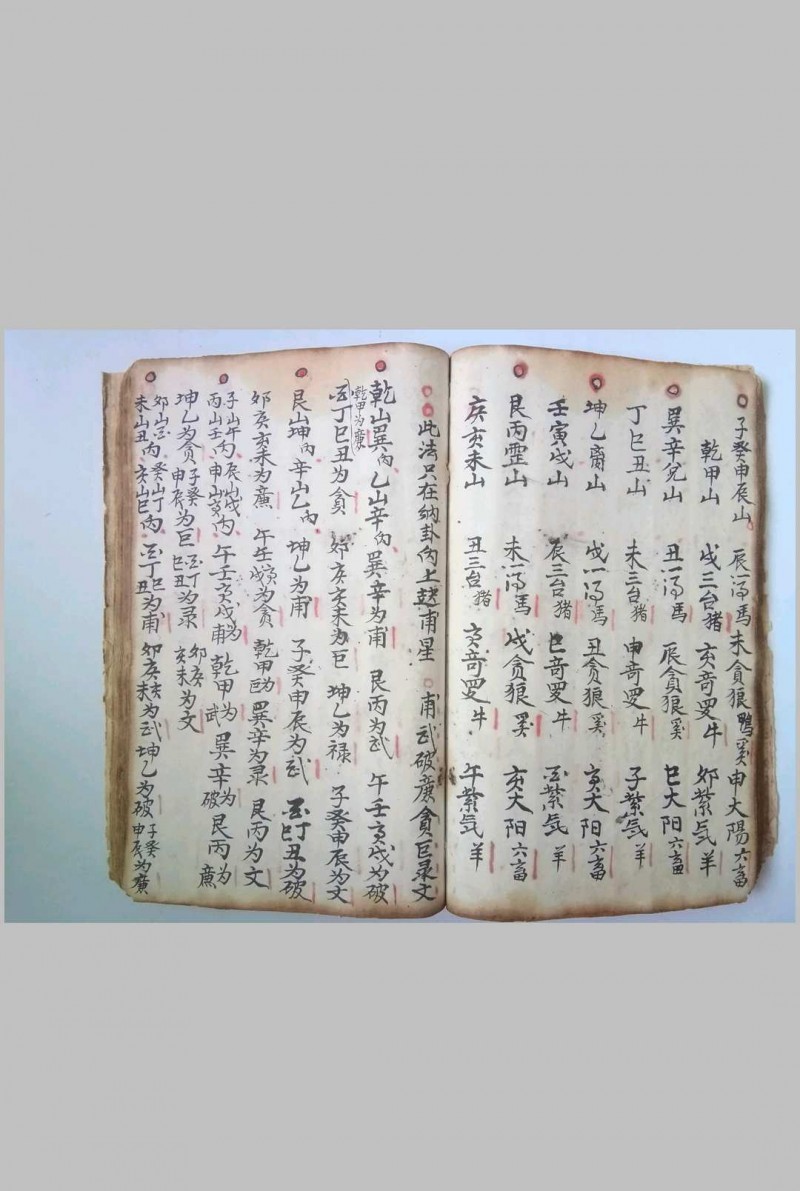 子癸申辰山 辰一馮馬 未貪狼鴨奚 申大陽六畜
乾甲山 戌三台猪 亥奇罗牛 卯紫気羊
巽辛兌山 丑一馮馬 辰貪狼奚 巳大阳六畜
丁巳丑山 未三台猪 申奇罗牛 子紫気羊
坤乙山 戌一馮馬 丑貪狼奚 亥大阳六畜
壬寅戌山 辰三台猪 巳奇罗牛 紫気羊
艮丙山 未一馮馬 戌貪狼奚 亥大阳六畜
庚亥未山 丑三台猪 亥奇罗牛 午紫気羊
此法只在纳卦内上起甫星 甫武破廉貪巨录文
乾山巽内 乙山辛内 巽辛为甫 艮丙为武 午壬戌为破
乾甲为廉
丁巳丑为貪 卯庚亥未为巨 坤乙为禄 子癸申辰为文
艮山坤内 辛山乙内 坤乙为甫 子癸申辰为武 丁巳丑为破
卯庚亥未为廉 午壬寅戌为貪 乾甲为巨 巽辛为录 艮丙为文
子山午内 辰山戌内 午壬寅戌为甫 乾甲为武 巽辛为破 艮丙为廉
丙山壬内 申山寅内
坤乙为貪 子癸申辰为巨 丁巳丑为录 卯庚亥未为文
卯山内 癸山丁内 丁巳丑为甫 卯庚亥未为武 坤乙为破 子癸申辰为廉
未山丑内 亥山巳内